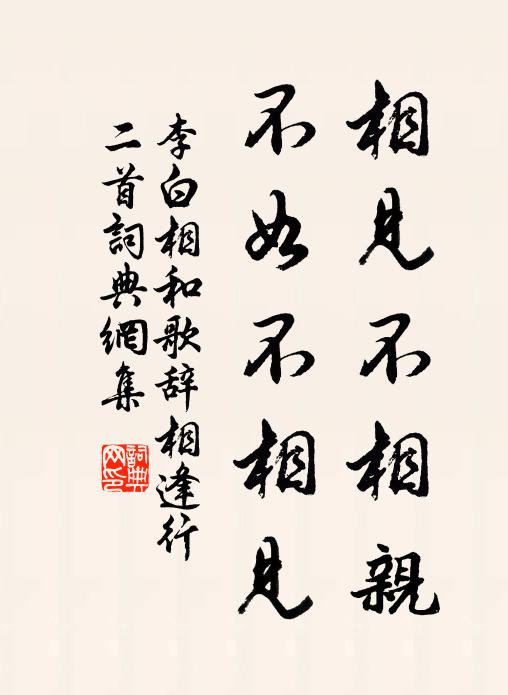 相見不相親
不如不相見
李白相和歌辞相逢行
二首詞典網集
詞典网印